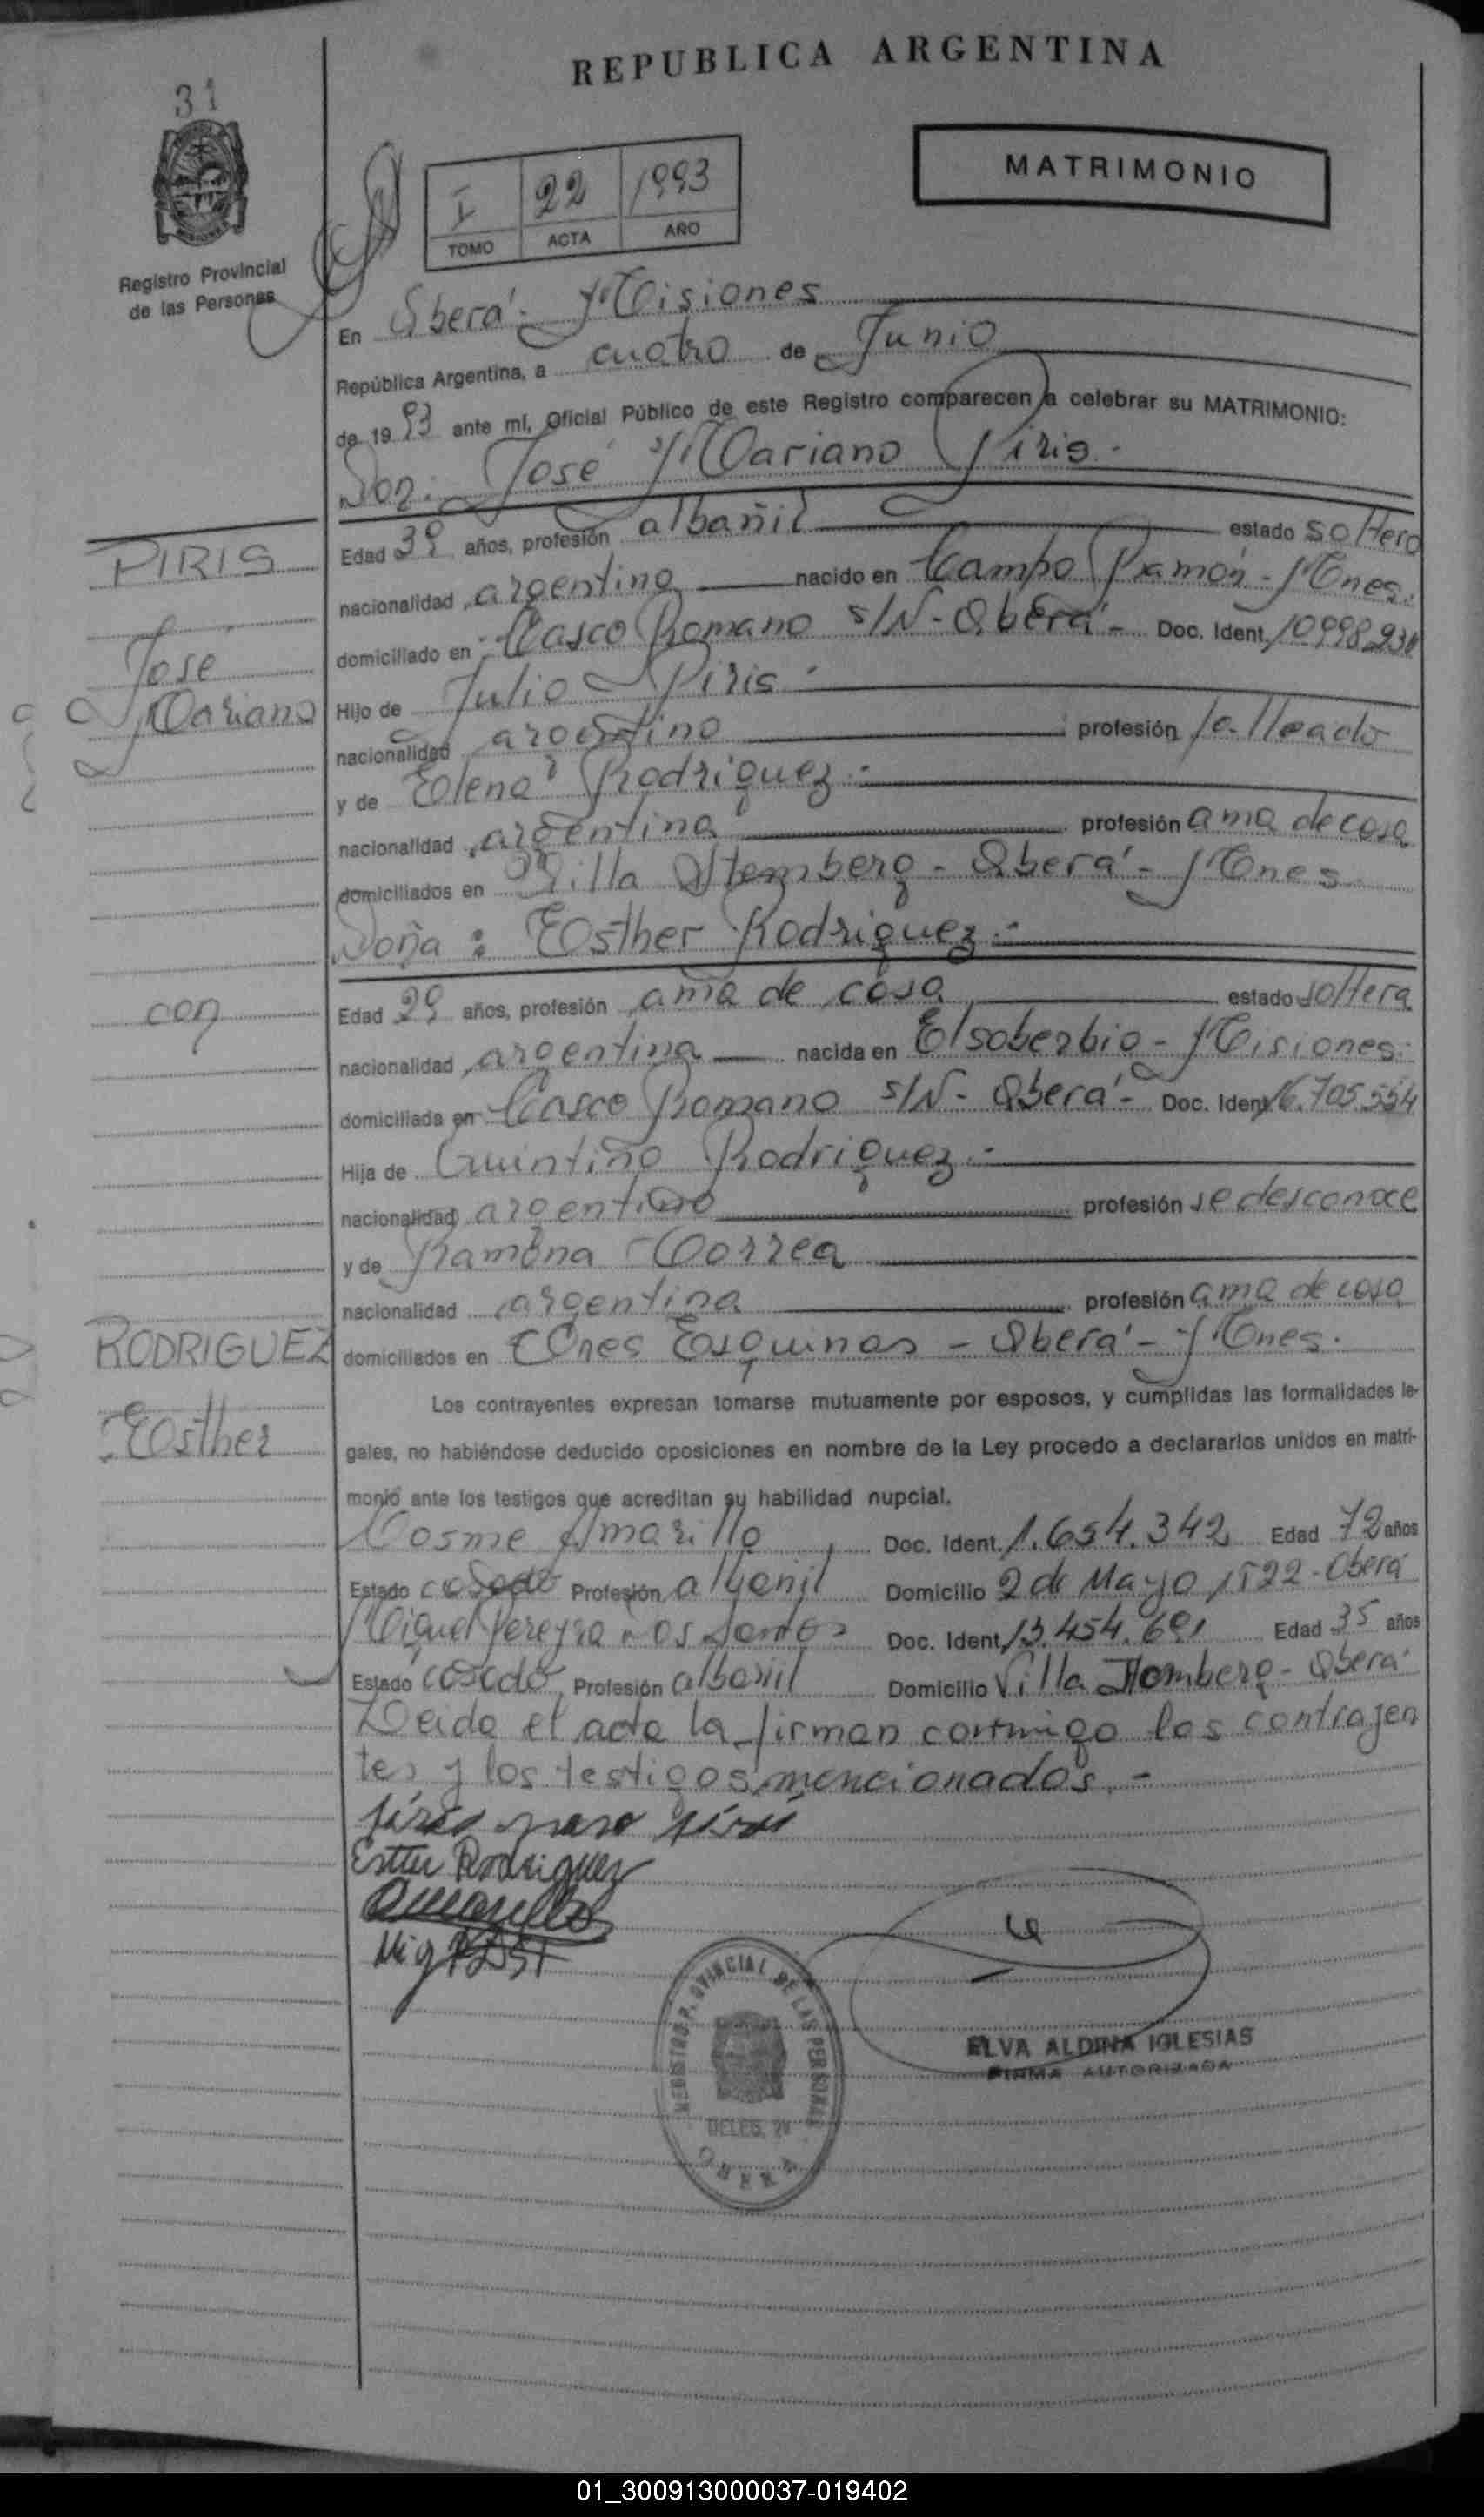 REPUBLICA ARGENTINA
31
MATRIMONIO
I 22 1993
TOMO ACTA AÑO
Registro Provincial
de las Personas
En Oberá - Misiones
República Argentina, a cuatro de Junio
de 1993 ante mí, Oficial Público de este Registro comparecen a celebrar su MATRIMONIO:
Don: José Mariano Piris.-
PIRIS
Jose
Mariano
Edad 39 años, profesión albañil estado soltero
nacionalidad argentina nacido en Campo Ramón - Mnes.
domiciliado en Casco Romano s/N - Oberá - Doc. Ident.
Hijo de Julio Piris.-
nacionalidad argentino profesión falleado
y de Elena Rodriguez.-
nacionalidad argentina profesión ama de casa
domiciliados en Villa Stemberg - Oberá - Mnes
Doña: Esther Rodriguez.-
con
Edad 29 años, profesión ama de casa estado soltera
nacionalidad argentina nacida en Elsoberbio - Misiones.
domiciliada en Casco Romano s/N - Oberá - Doc. Ident. 16.705.554
Hija de Quintino Rodriguez.-
nacionalidad argentino profesión se desconoce
y de Ramona Correa
nacionalidad argentina profesión ama de casa
domiciliados en Tres Esquinas - Oberá - Mnes.
RODRIGUEZ
Esther
Los contrayentes expresan tomarse mutuamente por esposos, y cumplidas las formalidades le-
gales, no habiéndose deducido oposiciones en nombre de la Ley procedo a declararlos unidos en matri-
monio ante los testigos que acreditan su habilidad nupcial.
Cosme Amarillo Doc. Ident. 1.654.342 Edad 72 años
Estado casado Profesión albañil Domicilio 2 de Mayo 1522 - Oberá
Miguel Pereyra Dos Santos Doc. Ident. 13.454.691 Edad 35 años
Estado casado Profesión albañil Domicilio Villa Stemberg - Oberá
Leida el acta la firman conmigo los contrayen
tes y los testigos mencionados.-
Esther Rodriguez
Amarillo
REGISTRO PROVINCIAL DE LAS PERSONAS
DELEG.
OBERA
ELVA ALDINA IGLESIAS
FIRMA AUTORIZADA
01_300913000037-019402